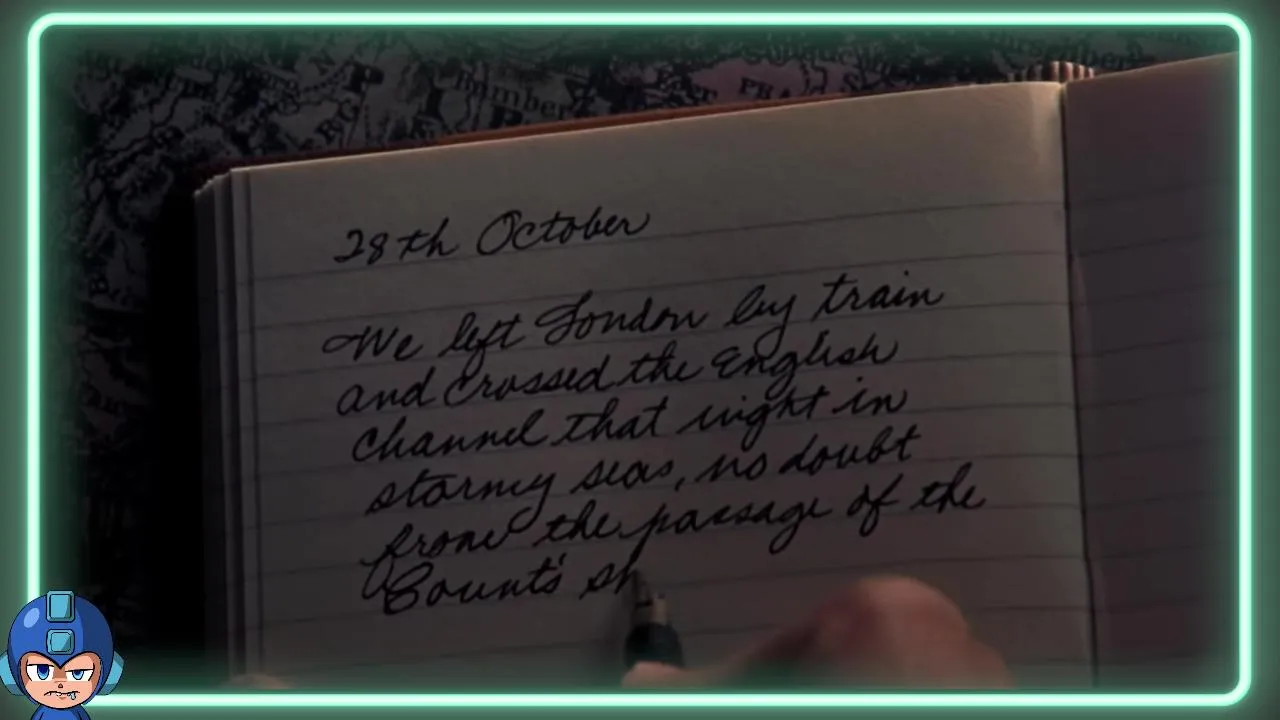 Bamberg
PRA
28th October
We left London by train
and crossed the English
Channel that night in
stormy seas, no doubt
from the passage of the
Count's sh